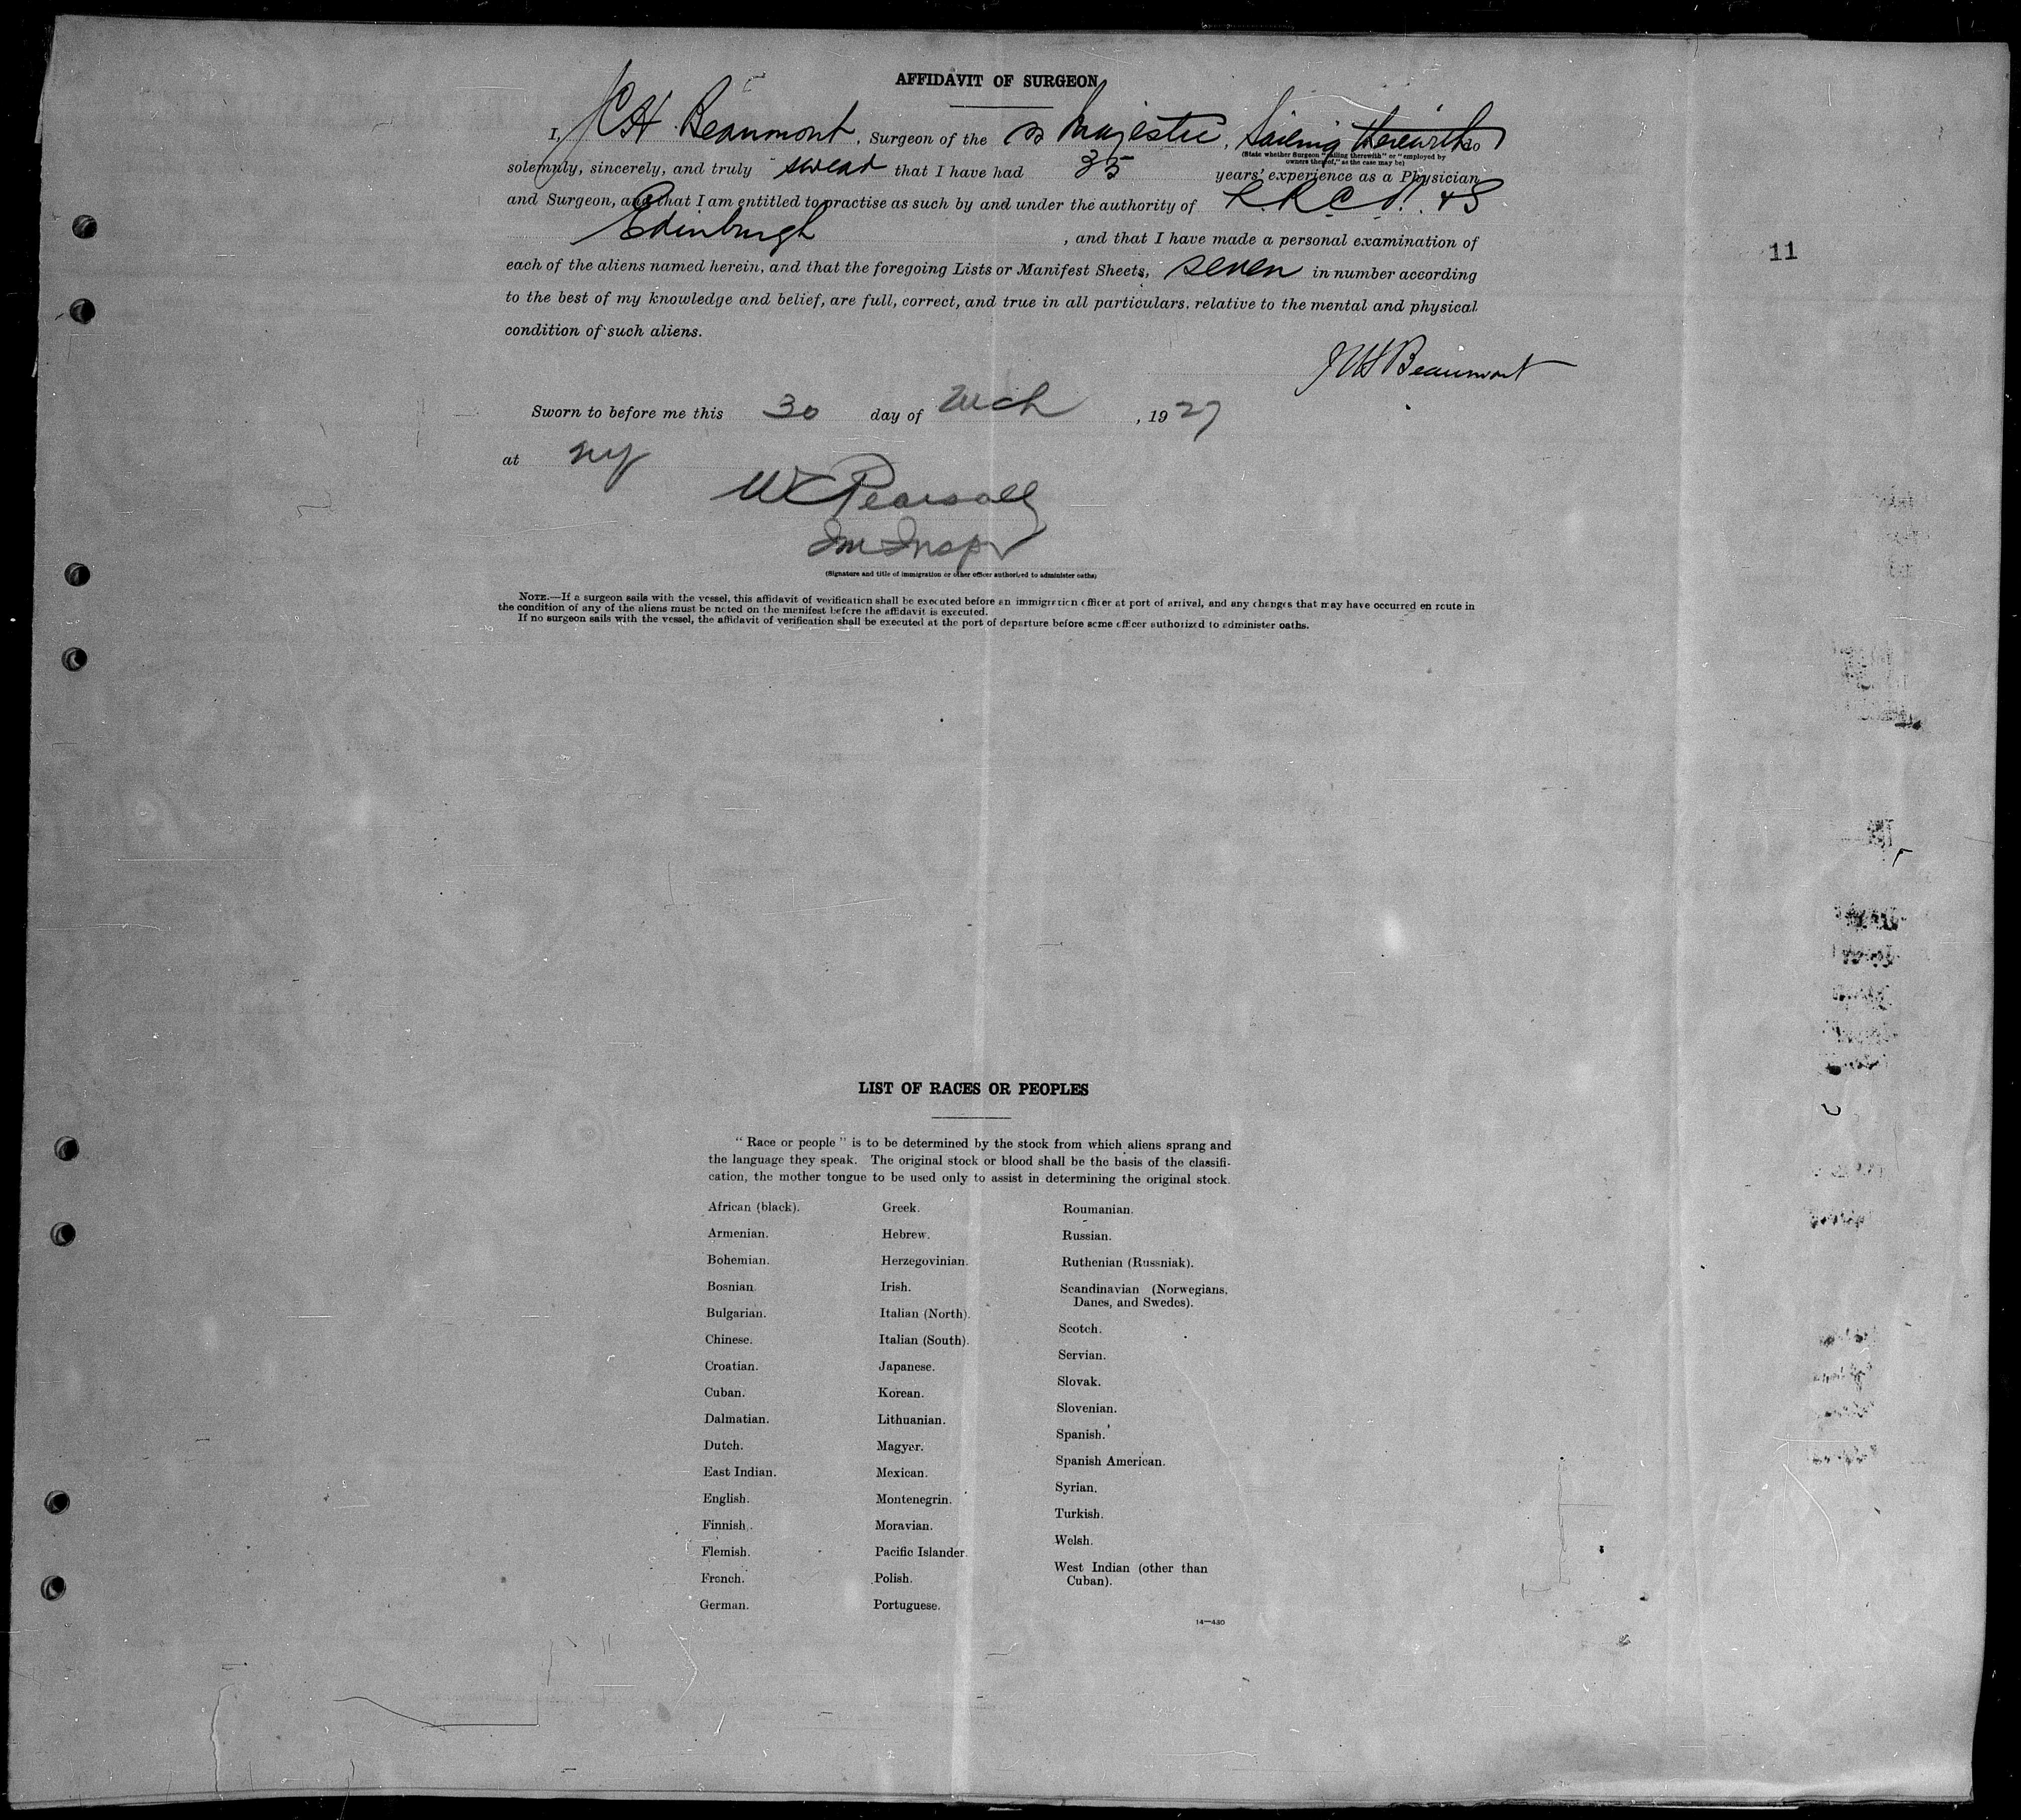 AFFIDAVIT OF SURGEON
I, JCH Beaumont, Surgeon of the SS Majestic, Sailing therewith do
(State whether Surgeon "sailing therewith" or "employed by
owners thereof," as the case may be)
solemnly, sincerely, and truly swear that I have had 35 years' experience as a Physician
and Surgeon, and that I am entitled to practise as such by and under the authority of R.C.P. & S
Edinburgh, and that I have made a personal examination of
each of the aliens named herein, and that the foregoing Lists or Manifest Sheets, seven in number according
11
to the best of my knowledge and belief, are full, correct, and true in all particulars, relative to the mental and physical
condition of such aliens.
JCH Beaumont
Sworn to before me this 30 day of Mch, 1927
at NY
WC Pearsall
Im Inspr
(Signature and title of immigration or other officer authorized to administer oaths)
NOTE.—If a surgeon sails with the vessel, this affidavit of verification shall be executed before an immigration officer at port of arrival, and any changes that may have occurred en route in
the condition of any of the aliens must be noted on the manifest before the affidavit is executed.
If no surgeon sails with the vessel, the affidavit of verification shall be executed at the port of departure before some officer authorized to administer oaths.
LIST OF RACES OR PEOPLES
"Race or people" is to be determined by the stock from which aliens sprang and
the language they speak. The original stock or blood shall be the basis of the classifi-
cation, the mother tongue to be used only to assist in determining the original stock.
African (black).
Armenian.
Bohemian.
Bosnian.
Bulgarian.
Chinese.
Croatian.
Cuban.
Dalmatian.
Dutch.
East Indian.
English.
Finnish.
Flemish.
French.
German.
Greek.
Hebrew.
Herzegovinian.
Irish.
Italian (North).
Italian (South).
Japanese.
Korean.
Lithuanian.
Magyar.
Mexican.
Montenegrin.
Moravian.
Pacific Islander.
Polish.
Portuguese.
Roumanian.
Russian.
Ruthenian (Russniak).
Scandinavian (Norwegians,
Danes, and Swedes).
Scotch.
Servian.
Slovak.
Slovenian.
Spanish.
Spanish American.
Syrian.
Turkish.
Welsh.
West Indian (other than
Cuban).
14—430